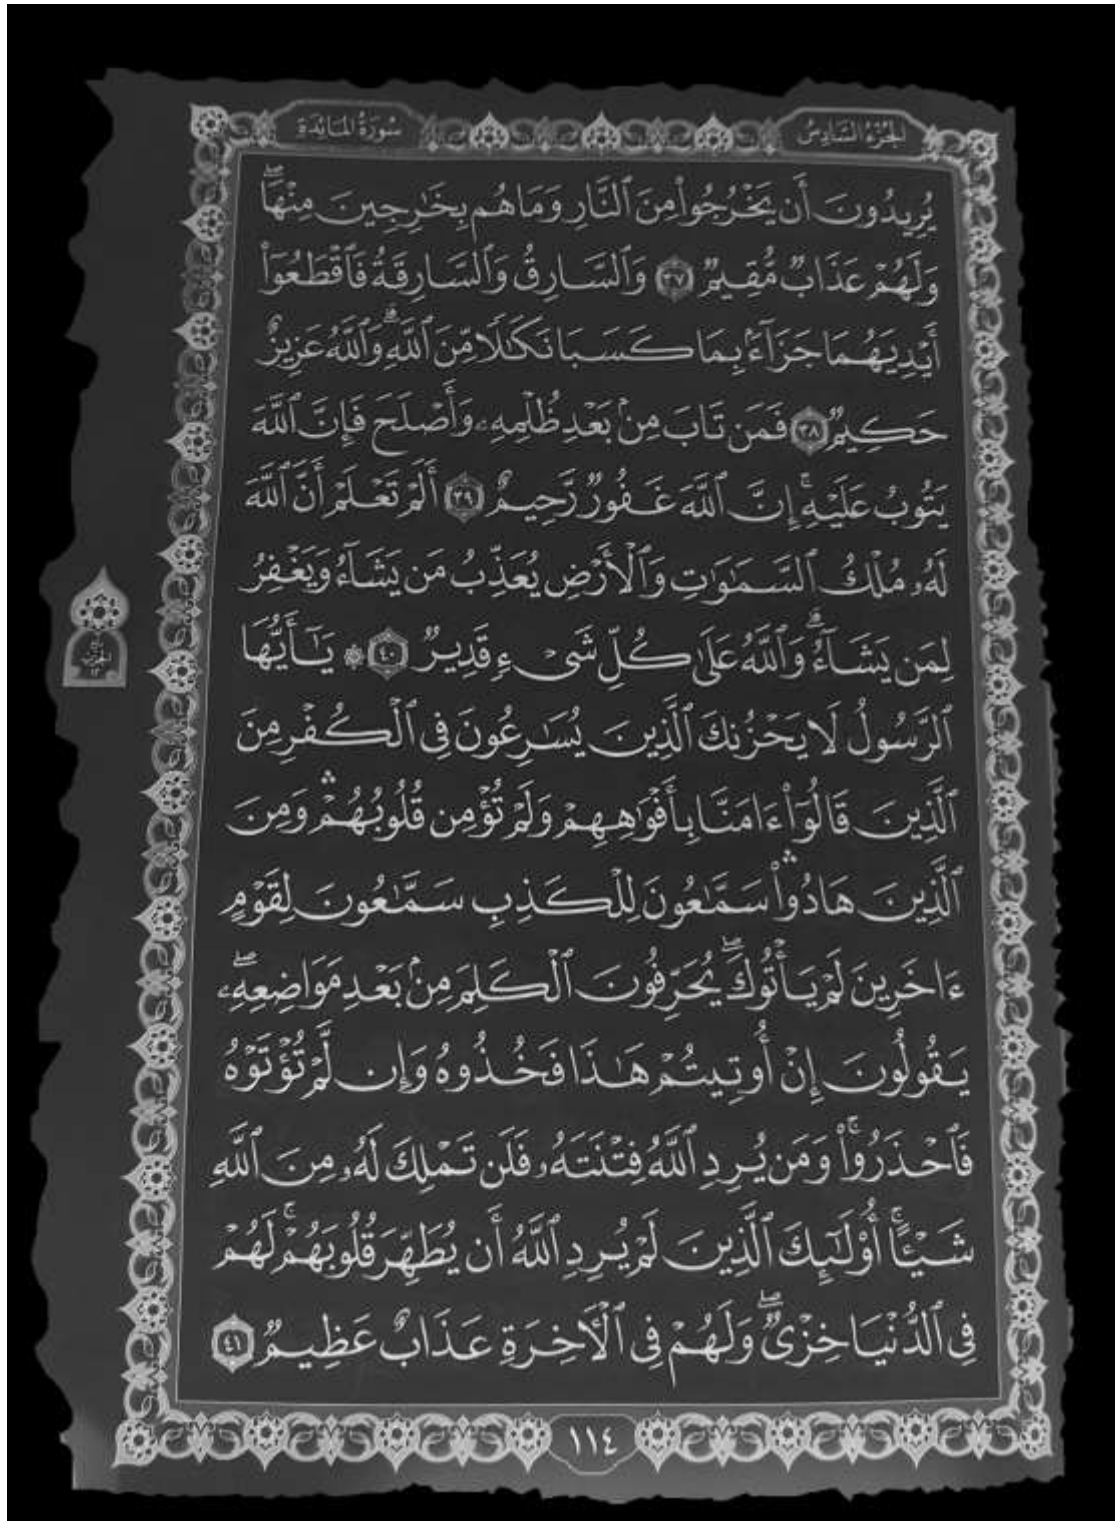 الجُزْءُ السَّادِسُ
سُورَةُ المَائِدَةِ
يُرِيدُونَ أَن يَخْرُجُوا۟ مِنَ ٱلنَّارِ وَمَا هُم بِخَٰرِجِينَ مِنْهَا ۖ
وَلَهُمْ عَذَابٌ مُّقِيمٌ ٣٧ وَٱلسَّارِقُ وَٱلسَّارِقَةُ فَٱقْطَعُوٓا۟
أَيْدِيَهُمَا جَزَآءًۢ بِمَا كَسَبَا نَكَٰلًا مِّنَ ٱللَّهِ ۗ وَٱللَّهُ عَزِيزٌ
حَكِيمٌ ٣٨ فَمَن تَابَ مِنۢ بَعْدِ ظُلْمِهِۦ وَأَصْلَحَ فَإِنَّ ٱللَّهَ
يَتُوبُ عَلَيْهِ ۚ إِنَّ ٱللَّهَ غَفُورٌ رَّحِيمٌ ٣٩ أَلَمْ تَعْلَمْ أَنَّ ٱللَّهَ
لَهُۥ مُلْكُ ٱلسَّمَٰوَٰتِ وَٱلْأَرْضِ يُعَذِّبُ مَن يَشَآءُ وَيَغْفِرُ
لِمَن يَشَآءُ ۗ وَٱللَّهُ عَلَىٰ كُلِّ شَىْءٍ قَدِيرٌ ٤٠ ۞ يَٰٓأَيُّهَا
ٱلرَّسُولُ لَا يَحْزُنكَ ٱلَّذِينَ يُسَٰرِعُونَ فِى ٱلْكُفْرِ مِنَ
ٱلَّذِينَ قَالُوٓا۟ ءَامَنَّا بِأَفْوَٰهِهِمْ وَلَمْ تُؤْمِن قُلُوبُهُمْ ۛ وَمِنَ
ٱلَّذِينَ هَادُوا۟ ۛ سَمَّٰعُونَ لِلْكَذِبِ سَمَّٰعُونَ لِقَوْمٍ
ءَاخَرِينَ لَمْ يَأْتُوكَ ۖ يُحَرِّفُونَ ٱلْكَلِمَ مِنۢ بَعْدِ مَوَاضِعِهِۦ ۖ
يَقُولُونَ إِنْ أُوتِيتُمْ هَٰذَا فَخُذُوهُ وَإِن لَّمْ تُؤْتَوْهُ
فَٱحْذَرُوا۟ ۚ وَمَن يُرِدِ ٱللَّهُ فِتْنَتَهُۥ فَلَن تَمْلِكَ لَهُۥ مِنَ ٱللَّهِ
شَيْـًٔا ۚ أُو۟لَٰٓئِكَ ٱلَّذِينَ لَمْ يُرِدِ ٱللَّهُ أَن يُطَهِّرَ قُلُوبَهُمْ ۚ لَهُمْ
فِى ٱلدُّنْيَا خِزْىٌ ۖ وَلَهُمْ فِى ٱلْءَاخِرَةِ عَذَابٌ عَظِيمٌ ٤١
١١٤